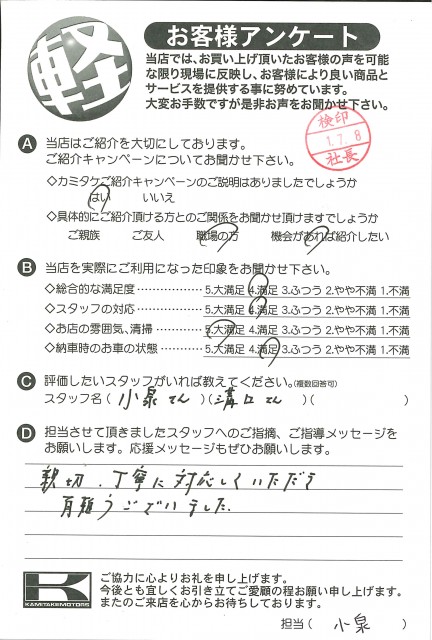 軽
お客様アンケート
当店では、お買い上げ頂いたお客様の声を可能
な限り現場に反映し、お客様により良い商品と
サービスを提供する事に努めています。
大変お手数ですが是非お声をお聞かせ下さい。
検印
1.7.8
社長
A 当店はご紹介を大切にしております。
ご紹介キャンペーンについてお聞かせ下さい。
◇カミタケご紹介キャンペーンのご説明はありましたでしょうか
はい いいえ
◇具体的にご紹介頂ける方とのご関係をお聞かせ頂けますでしょうか
ご親族 ご友人 職場の方 機会があれば紹介したい
B 当店を実際にご利用になった印象をお聞かせ下さい。
◇総合的な満足度 ……………… 5.大満足 4.満足 3.ふつう 2.やや不満 1.不満
◇スタッフの対応 ……………… 5.大満足 4.満足 3.ふつう 2.やや不満 1.不満
◇お店の雰囲気、清掃 ………… 5.大満足 4.満足 3.ふつう 2.やや不満 1.不満
◇納車時のお車の状態 ………… 5.大満足 4.満足 3.ふつう 2.やや不満 1.不満
C 評価したいスタッフがいれば教えてください。(複数回答可)
スタッフ名(小泉さん)(溝口さん)( )
D 担当させて頂きましたスタッフへのご指摘、ご指導メッセージを
お願いします。応援メッセージもぜひお願いします。
親切、丁寧に対応していただき
有難うございました。
K
KAMITAKEMOTORS
ご協力に心よりお礼を申し上げます。
今後とも宜しくお引き立てご愛顧の程お願い申し上げます。
またのご来店を心からお待ちしております。
担当( 小泉 )